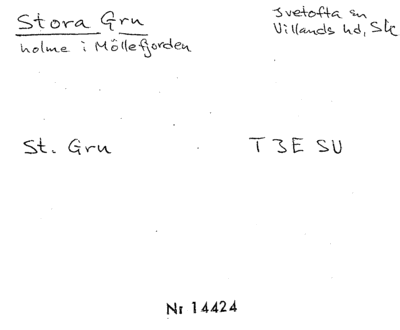 Stora Gru
Ivetofta sn
Villands hd, Sk
holme i Möllefjorden
St. Gru
T 3E SU
Nr 14424